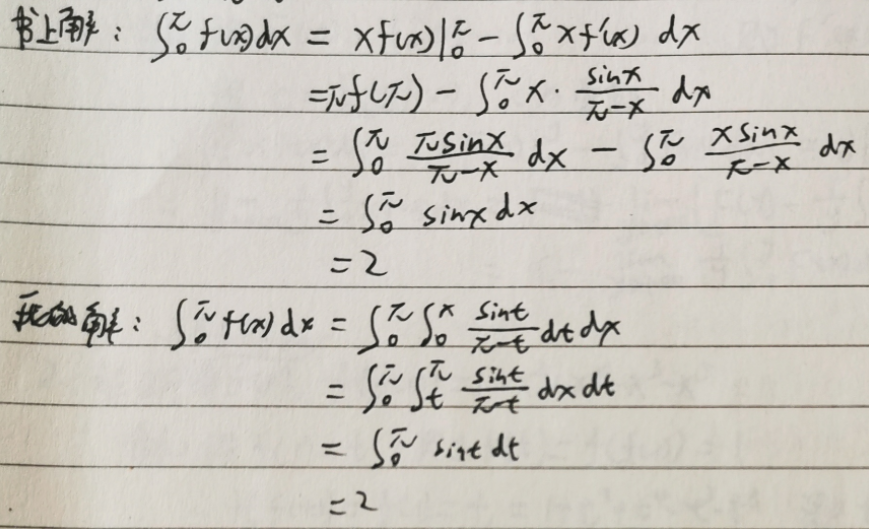 书上解：∫₀^π f(x)dx = xf(x)|₀^π − ∫₀^π xf'(x) dx
= πf(π) − ∫₀^π x · sinx/(π−x) dx
= ∫₀^π πsinx/(π−x) dx − ∫₀^π xsinx/(π−x) dx
= ∫₀^π sinx dx
= 2
我的解：∫₀^π f(x)dx = ∫₀^π ∫₀^x sint/(π−t) dt dx
= ∫₀^π ∫ₜ^π sint/(π−t) dx dt
= ∫₀^π sint dt
= 2